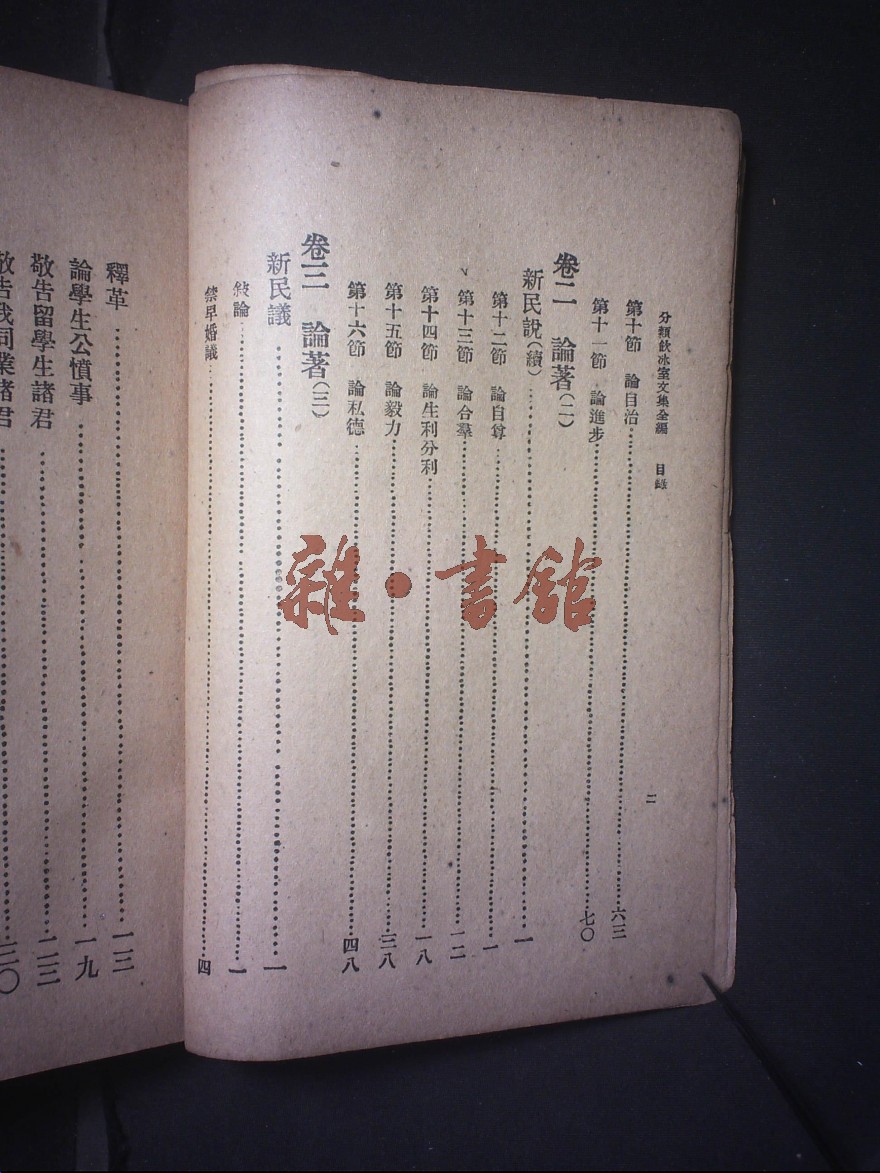 分類飮冰室文集全編　目錄
二
第十節　論自治……六三
第十一節　論進步……七〇
卷二　論著(二)
新民說(續)……一
第十二節　論自尊……一
第十三節　論合羣……一二
第十四節　論生利分利……一八
第十五節　論毅力……三八
第十六節　論私德……四八
卷三　論著(三)
新民議……一
敍論……一
禁早婚議……四
釋革……一三
論學生公憤事……一九
敬告留學生諸君……二三
敬告我同業諸君……三〇
雜·書館